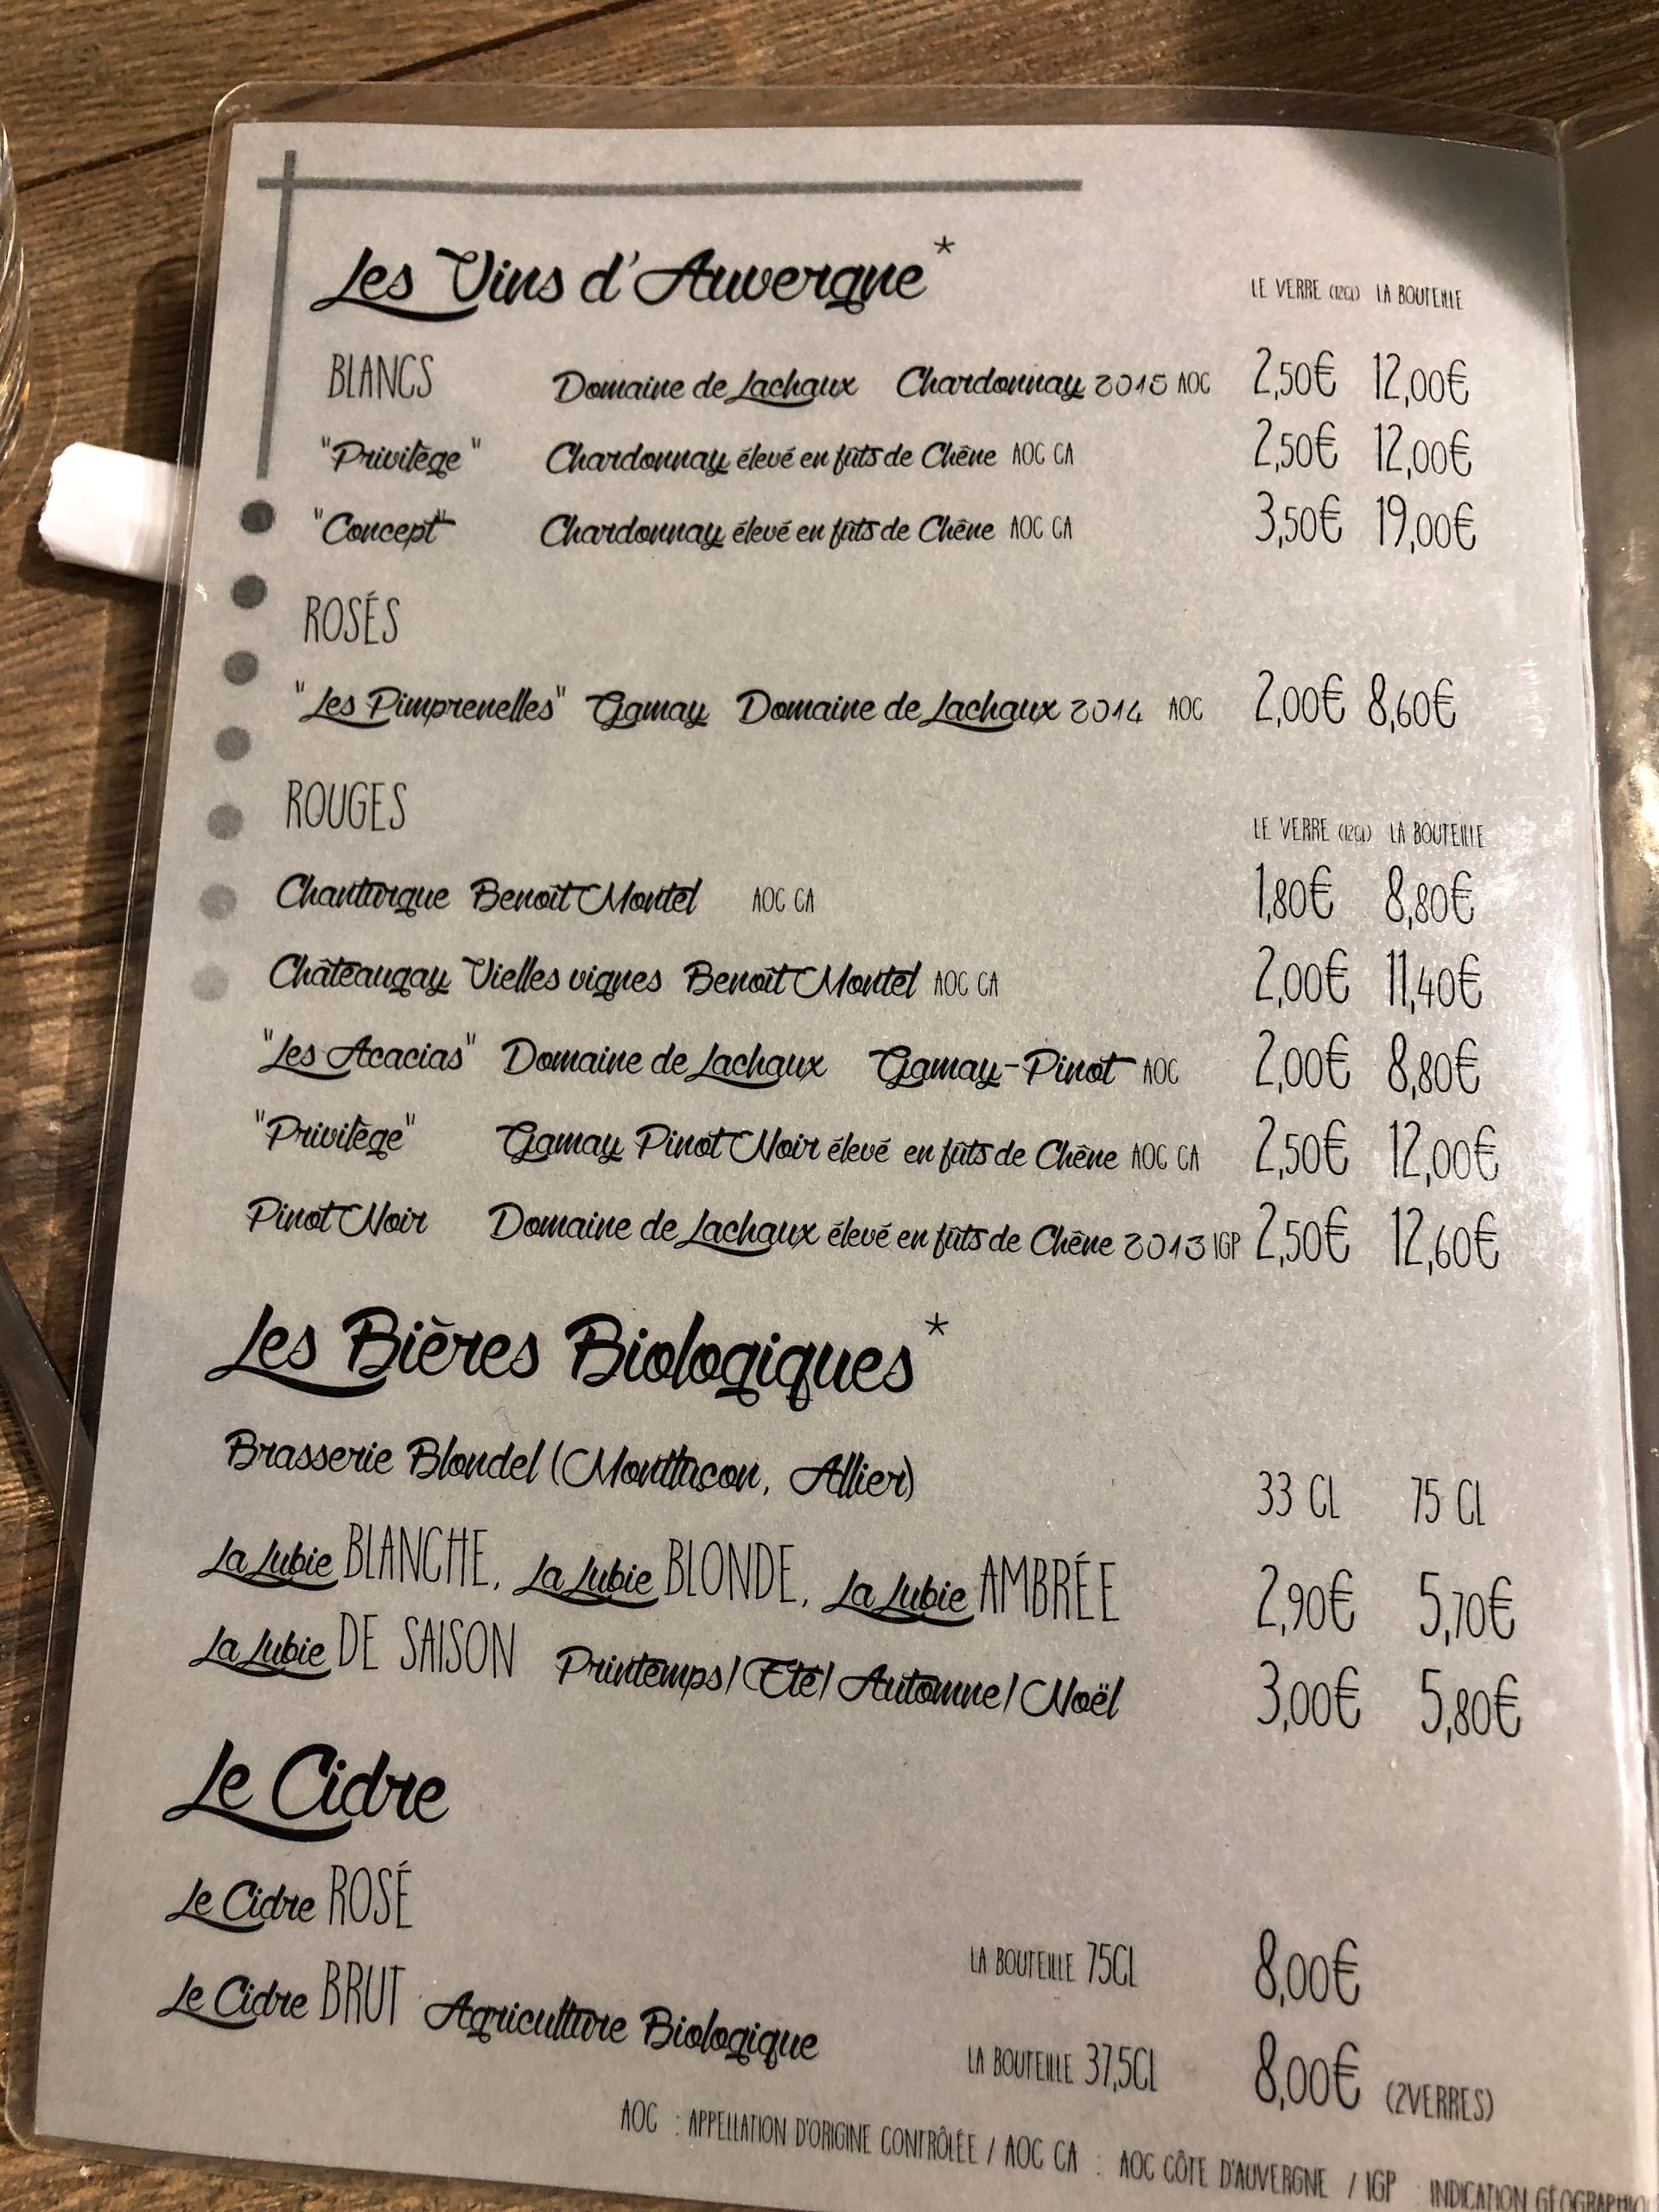 Les Vins d'Auvergne*
LE VERRE (12CL) LA BOUTEILLE
BLANCS Domaine de Lachaux Chardonnay 2015 AOC 2,50€ 12,00€
"Privilège" Chardonnay élevé en fûts de Chêne AOC CA 2,50€ 12,00€
"Concept" Chardonnay élevé en fûts de Chêne AOC CA 3,50€ 19,00€
ROSÉS
"Les Pimprenelles" Gamay Domaine de Lachaux 2014 AOC 2,00€ 8,60€
ROUGES
LE VERRE (12CL) LA BOUTEILLE
Chanturgue Benoît Montel AOC CA 1,80€ 8,80€
Châteaugay Vielles vignes Benoît Montel AOC CA 2,00€ 11,40€
"Les Acacias" Domaine de Lachaux Gamay-Pinot AOC 2,00€ 8,80€
"Privilège" Gamay Pinot Noir élevé en fûts de Chêne AOC CA 2,50€ 12,00€
Pinot Noir Domaine de Lachaux élevé en fûts de Chêne 2013 IGP 2,50€ 12,60€
Les Bières Biologiques*
Brasserie Blondel (Monttacon, Allier) 33 CL 75 CL
La Lubie BLANCHE, La Lubie BLONDE, La Lubie AMBRÉE 2,90€ 5,70€
La Lubie DE SAISON Printemps/Eté/Automne/Noël 3,00€ 5,80€
Le Cidre
Le Cidre ROSÉ
LA BOUTEILLE 75CL 8,00€
Le Cidre BRUT Agriculture Biologique
LA BOUTEILLE 37,5CL 8,00€ (2VERRES)
AOC : APPELLATION D'ORIGINE CONTRÔLÉE / AOC CA : AOC CÔTE D'AUVERGNE / IGP : INDICATION